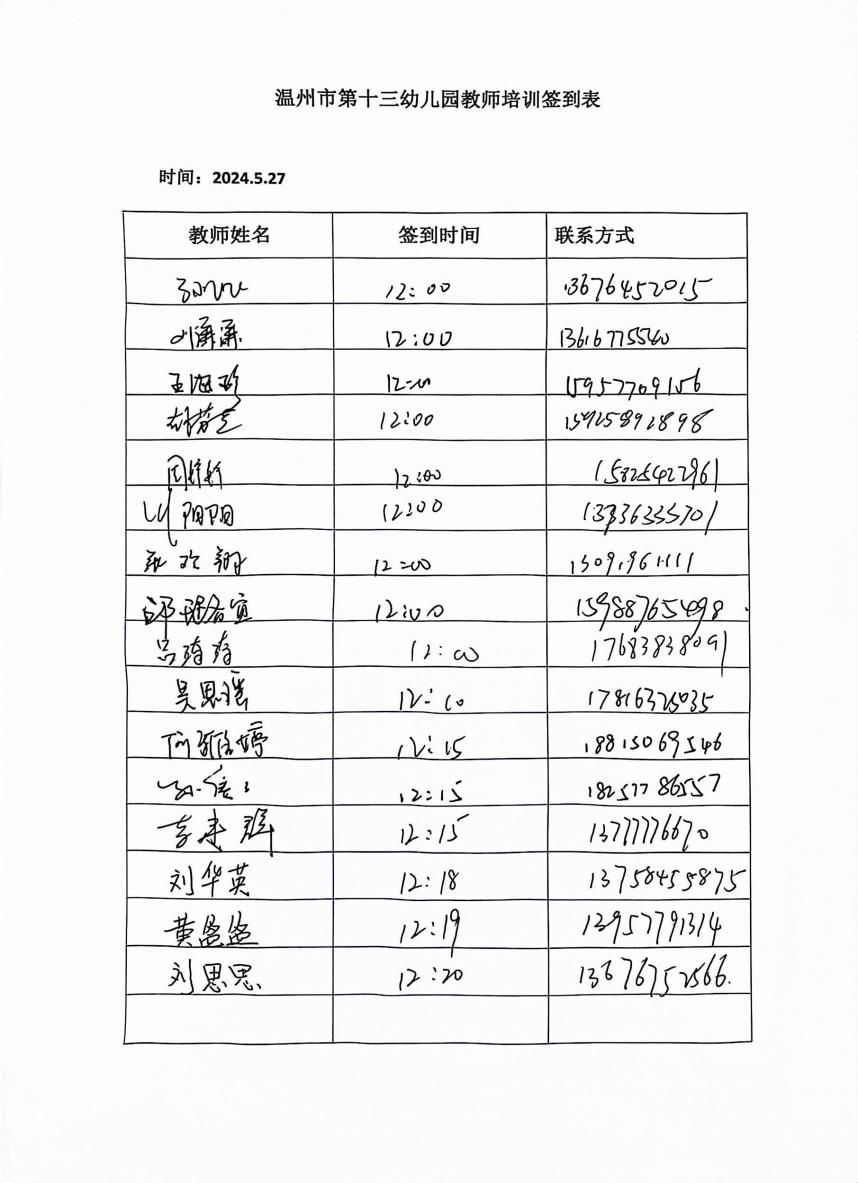 温州市第十三幼儿园教师培训签到表
时间：2024.5.27
教师姓名 签到时间 联系方式
12:00 13676452015
刘 12:00 13616775540
王海珍 12:00 15957709156
12:00 15925892898
周 12:00 15825422961
阳阳 12:00 13336335701
12:00
12:00 15988765498
吕琦琦 12:00 17683838091
吴思瑶 12:10 17816325035
何雅婷 12:15 18815069546
12:15 18257786557
李 12:15 13777776670
刘华英 12:18 13758455875
黄盈盈 12:19 13957791314
刘思思 12:20 13676752566.